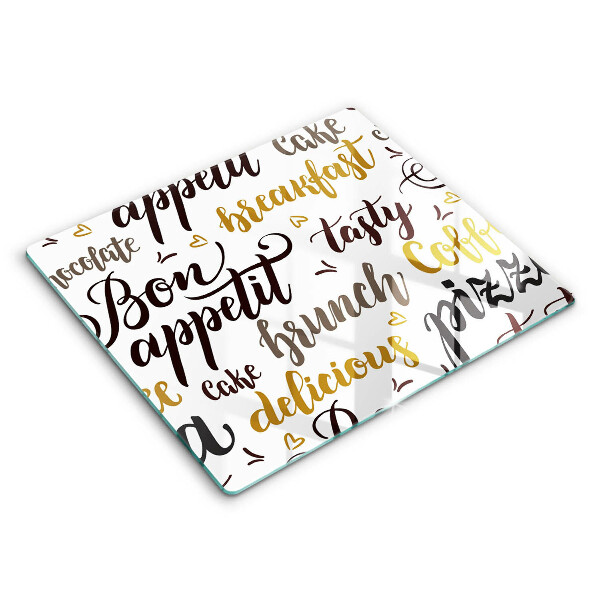 cake
appetit
breakfast
tasty
Coffe
chocolate
Bon
appetit
brunch
pizza
cake
delicious